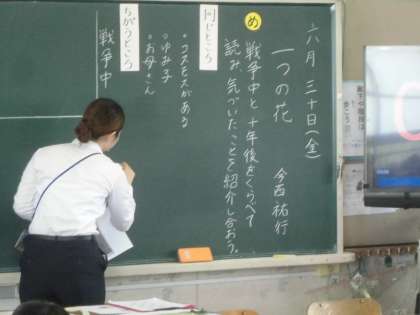 六月三十日(金)
一つの花 今西祐行
め
戦争中と十年後をくらべて
読み、気づいたことを紹介し合おう。
同じところ
・コスモスがある
・ゆみ子
・お母さん
ちがうところ
戦争中